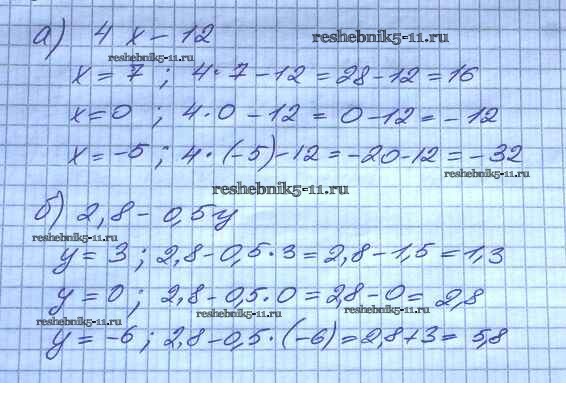 а) 4x - 12 reshebnik5-11.ru
reshebnik5-11.ru
x = 7 ; 4 · 7 - 12 = 28 - 12 = 16
x = 0 ; 4 · 0 - 12 = 0 - 12 = - 12
x = -5 ; 4 · (-5) - 12 = -20 - 12 = - 32
reshebnik5-11.ru
reshebnik5-11.ru
б) 2,8 - 0,5y
reshebnik5-11.ru
y = 3 ; 2,8 - 0,5 · 3 = 2,8 - 1,5 = 1,3
y = 0 ; 2,8 - 0,5 · 0 = 2,8 - 0 = 2,8
reshebnik5-11.ru reshebnik5-11.ru reshebnik5-11.ru
y = -6 ; 2,8 - 0,5 · (-6) = 2,8 + 3 = 5,8